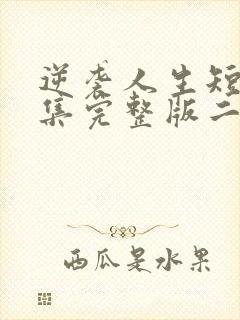 逆袭人生短
集完整版二
西瓜是水果